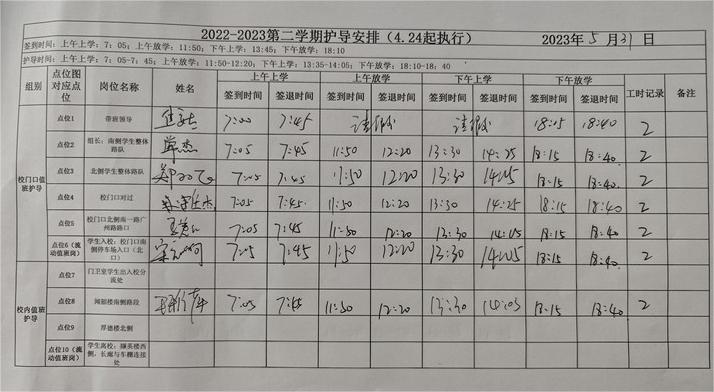 2022-2023第二学期护导安排（4.24起执行）
签到时间：上午上学：7：05；上午放学：11:50；下午上学：13:45；下午放学：18:10
2023年5月31日
护导时间：上午上学：7：05-7：45；上午放学：11:50-12:20；下午上学：13:35-14:05；下午放学：18:10-18：40
组别 点位图对应点位 岗位名称 姓名 上午上学 上午放学 下午上学 下午放学 工时记录 备注
签到时间 签退时间 签到时间 签退时间 签到时间 签退时间 签到时间 签退时间
校门口值班护导
点位1 带班领导 7:00 7:45 请假 请假 18:15 18:40 2
点位2 组长：南侧学生整体路队 7:05 7:45 11:50 12:20 13:30 14:25 18:15 18:40 2
点位3 北侧学生整体路队 7:05 7:45 11:50 12:20 13:30 18:15 18:40 2
点位4 校门口对过 7:05 7:45 11:50 12:20 13:30 14:25 18:15 18:40 2
点位5 校门口北侧南一路广州路路口 7:05 7:45 11:50 12:20 13:30 18:15 18:40 2
点位6（流动值班岗） 学生入校：校门口南侧停车场入口（北口） 7:05 7:45 11:50 12:20 13:30 18:15 18:40 2
校内值班护导
点位7 门卫室学生出入校分流处
点位8 闻韶楼南侧路段 7:05 7:45 11:50 12:20 13:30 14:05 18:15 18:40 2
点位9 厚德楼北侧
点位10（流动值班岗） 学生离校：撷英楼西侧，长廊与车棚连接处